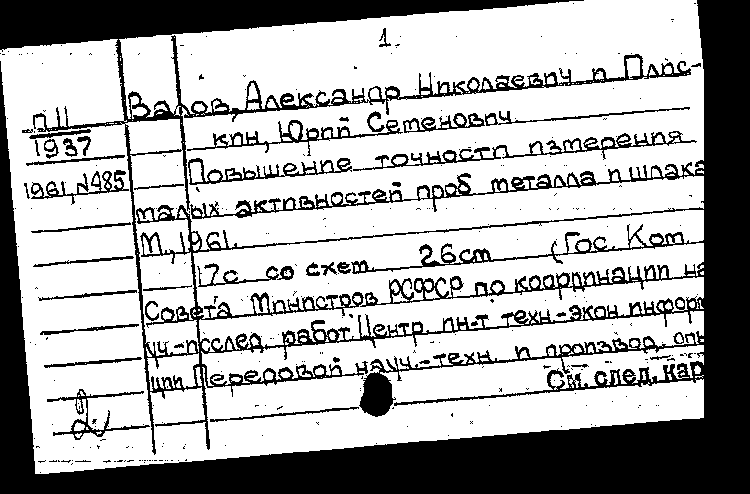 1.
Валов, Александр Николаевич и Плис-
П11
1937
кин, Юрий Семенович.
Повышение точности измерения
1961, №485
малых активностей проб металла и шлака
М., 1961.
17с. со схем. 26см (Гос. Ком.
Совета Министров РСФСР по координации на
уч.-исслед. работ. Центр. ин-т техн.-экон. информ
ции. Передовой науч.-техн. и производ. опы
См. след. кар
2